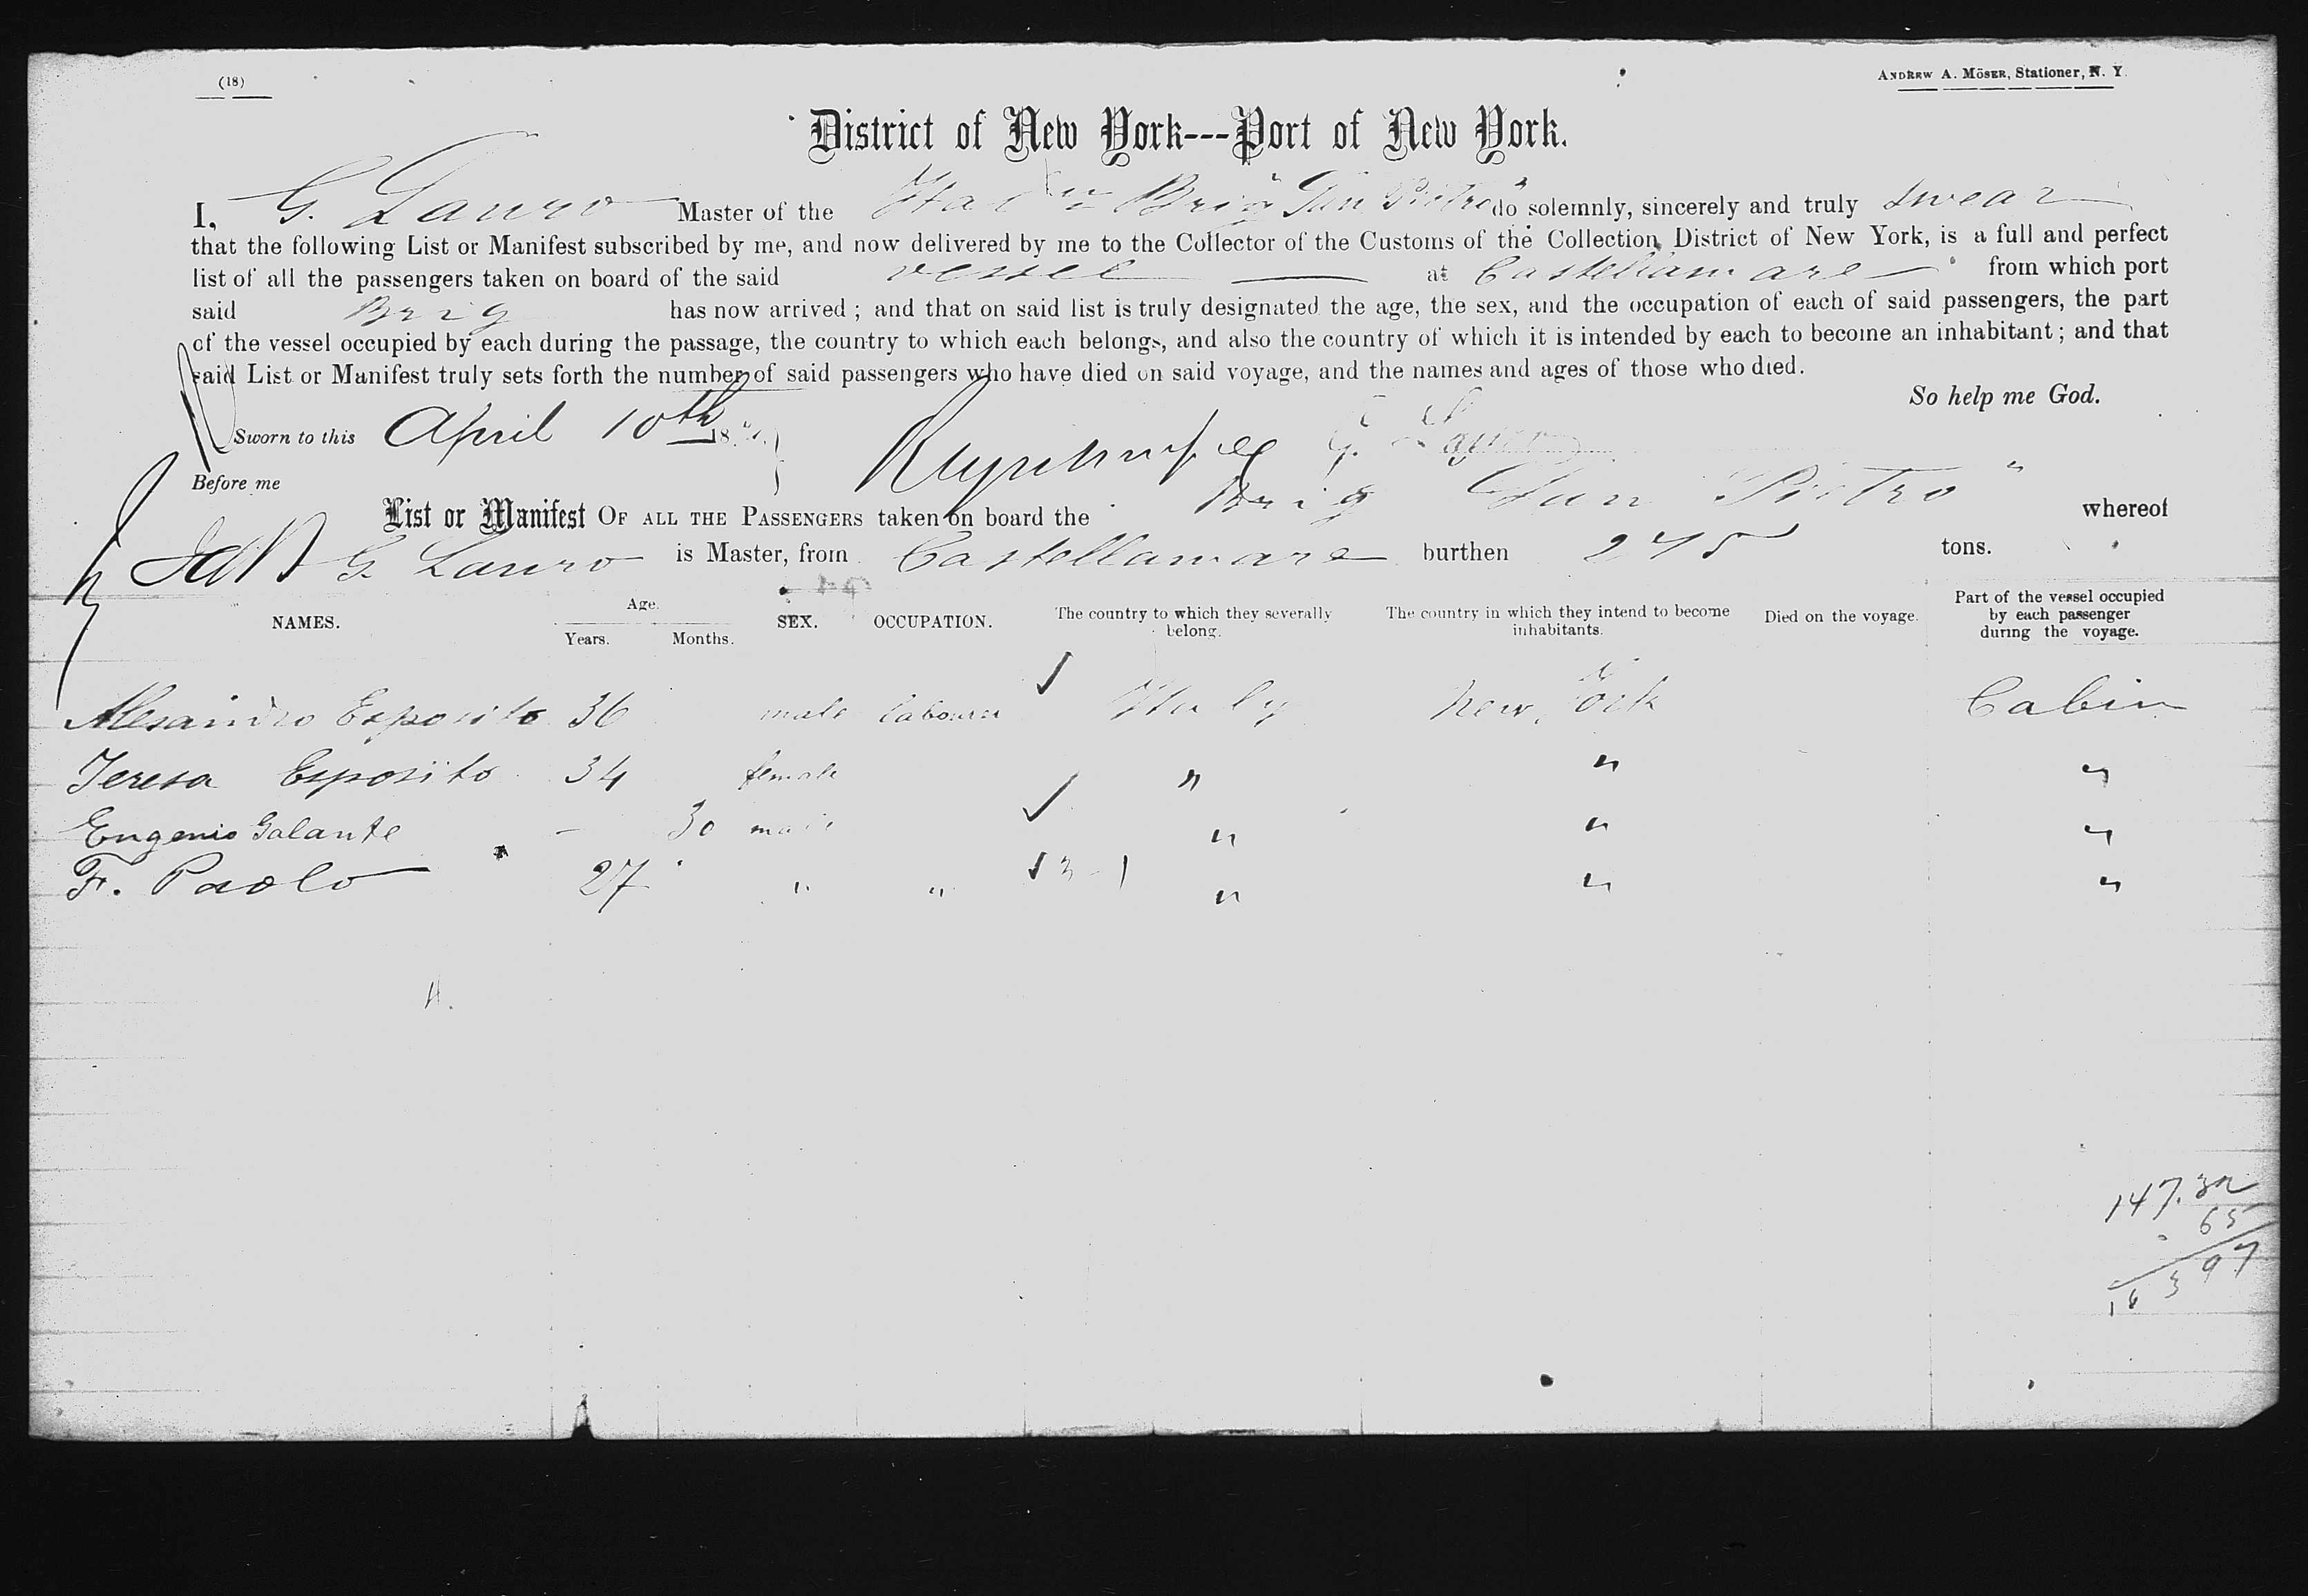 (18)
ANDREW A. MÖSER, Stationer, N. Y.
District of New York---Port of New York.
I, G. Lauro Master of the Brig San Pietro do solemnly, sincerely and truly swear
that the following List or Manifest subscribed by me, and now delivered by me to the Collector of the Customs of the Collection District of New York, is a full and perfect
list of all the passengers taken on board of the said vessel at Castellamare from which port
said Brig has now arrived ; and that on said list is truly designated the age, the sex, and the occupation of each of said passengers, the part
of the vessel occupied by each during the passage, the country to which each belongs, and also the country of which it is intended by each to become an inhabitant ; and that
said List or Manifest truly sets forth the number of said passengers who have died on said voyage, and the names and ages of those who died.
So help me God.
Sworn to this April 10th 18 G. Lauro
Before me
List or Manifest OF ALL THE PASSENGERS taken on board the Brig "San Pietro" whereof
G. Lauro is Master, from Castellamare burthen 275 tons.
NAMES. Age. Years. Months. SEX. OCCUPATION. The country to which they severally belong. The country in which they intend to become inhabitants. Died on the voyage. Part of the vessel occupied by each passenger during the voyage.
Alesandro Esposito 36 male labourer Italy New York Cabin
Teresa Esposito 34 female " " "
Eugenio Galante - 30 male " " "
F. Paolo 27 " " 3 - 1 " " "
147.32
65
163 97